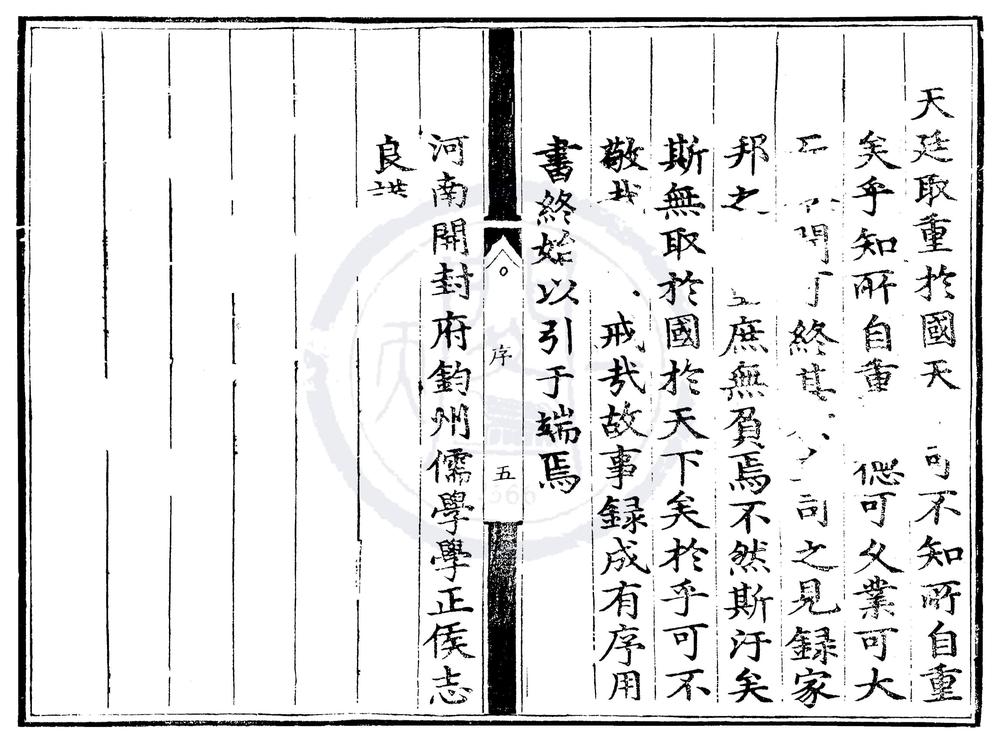 天廷取重於國天 可不知所自重
矣乎知所自重 德可久業可大
間可終其 司之見錄家
邦之 庶無負焉不然斯汙矣
斯無取於國於天下矣於乎可不
敬哉 戒哉故事錄成有序用
書終始以引于端焉
序 五
河南開封府鈞州儒學學正侯志
良謹